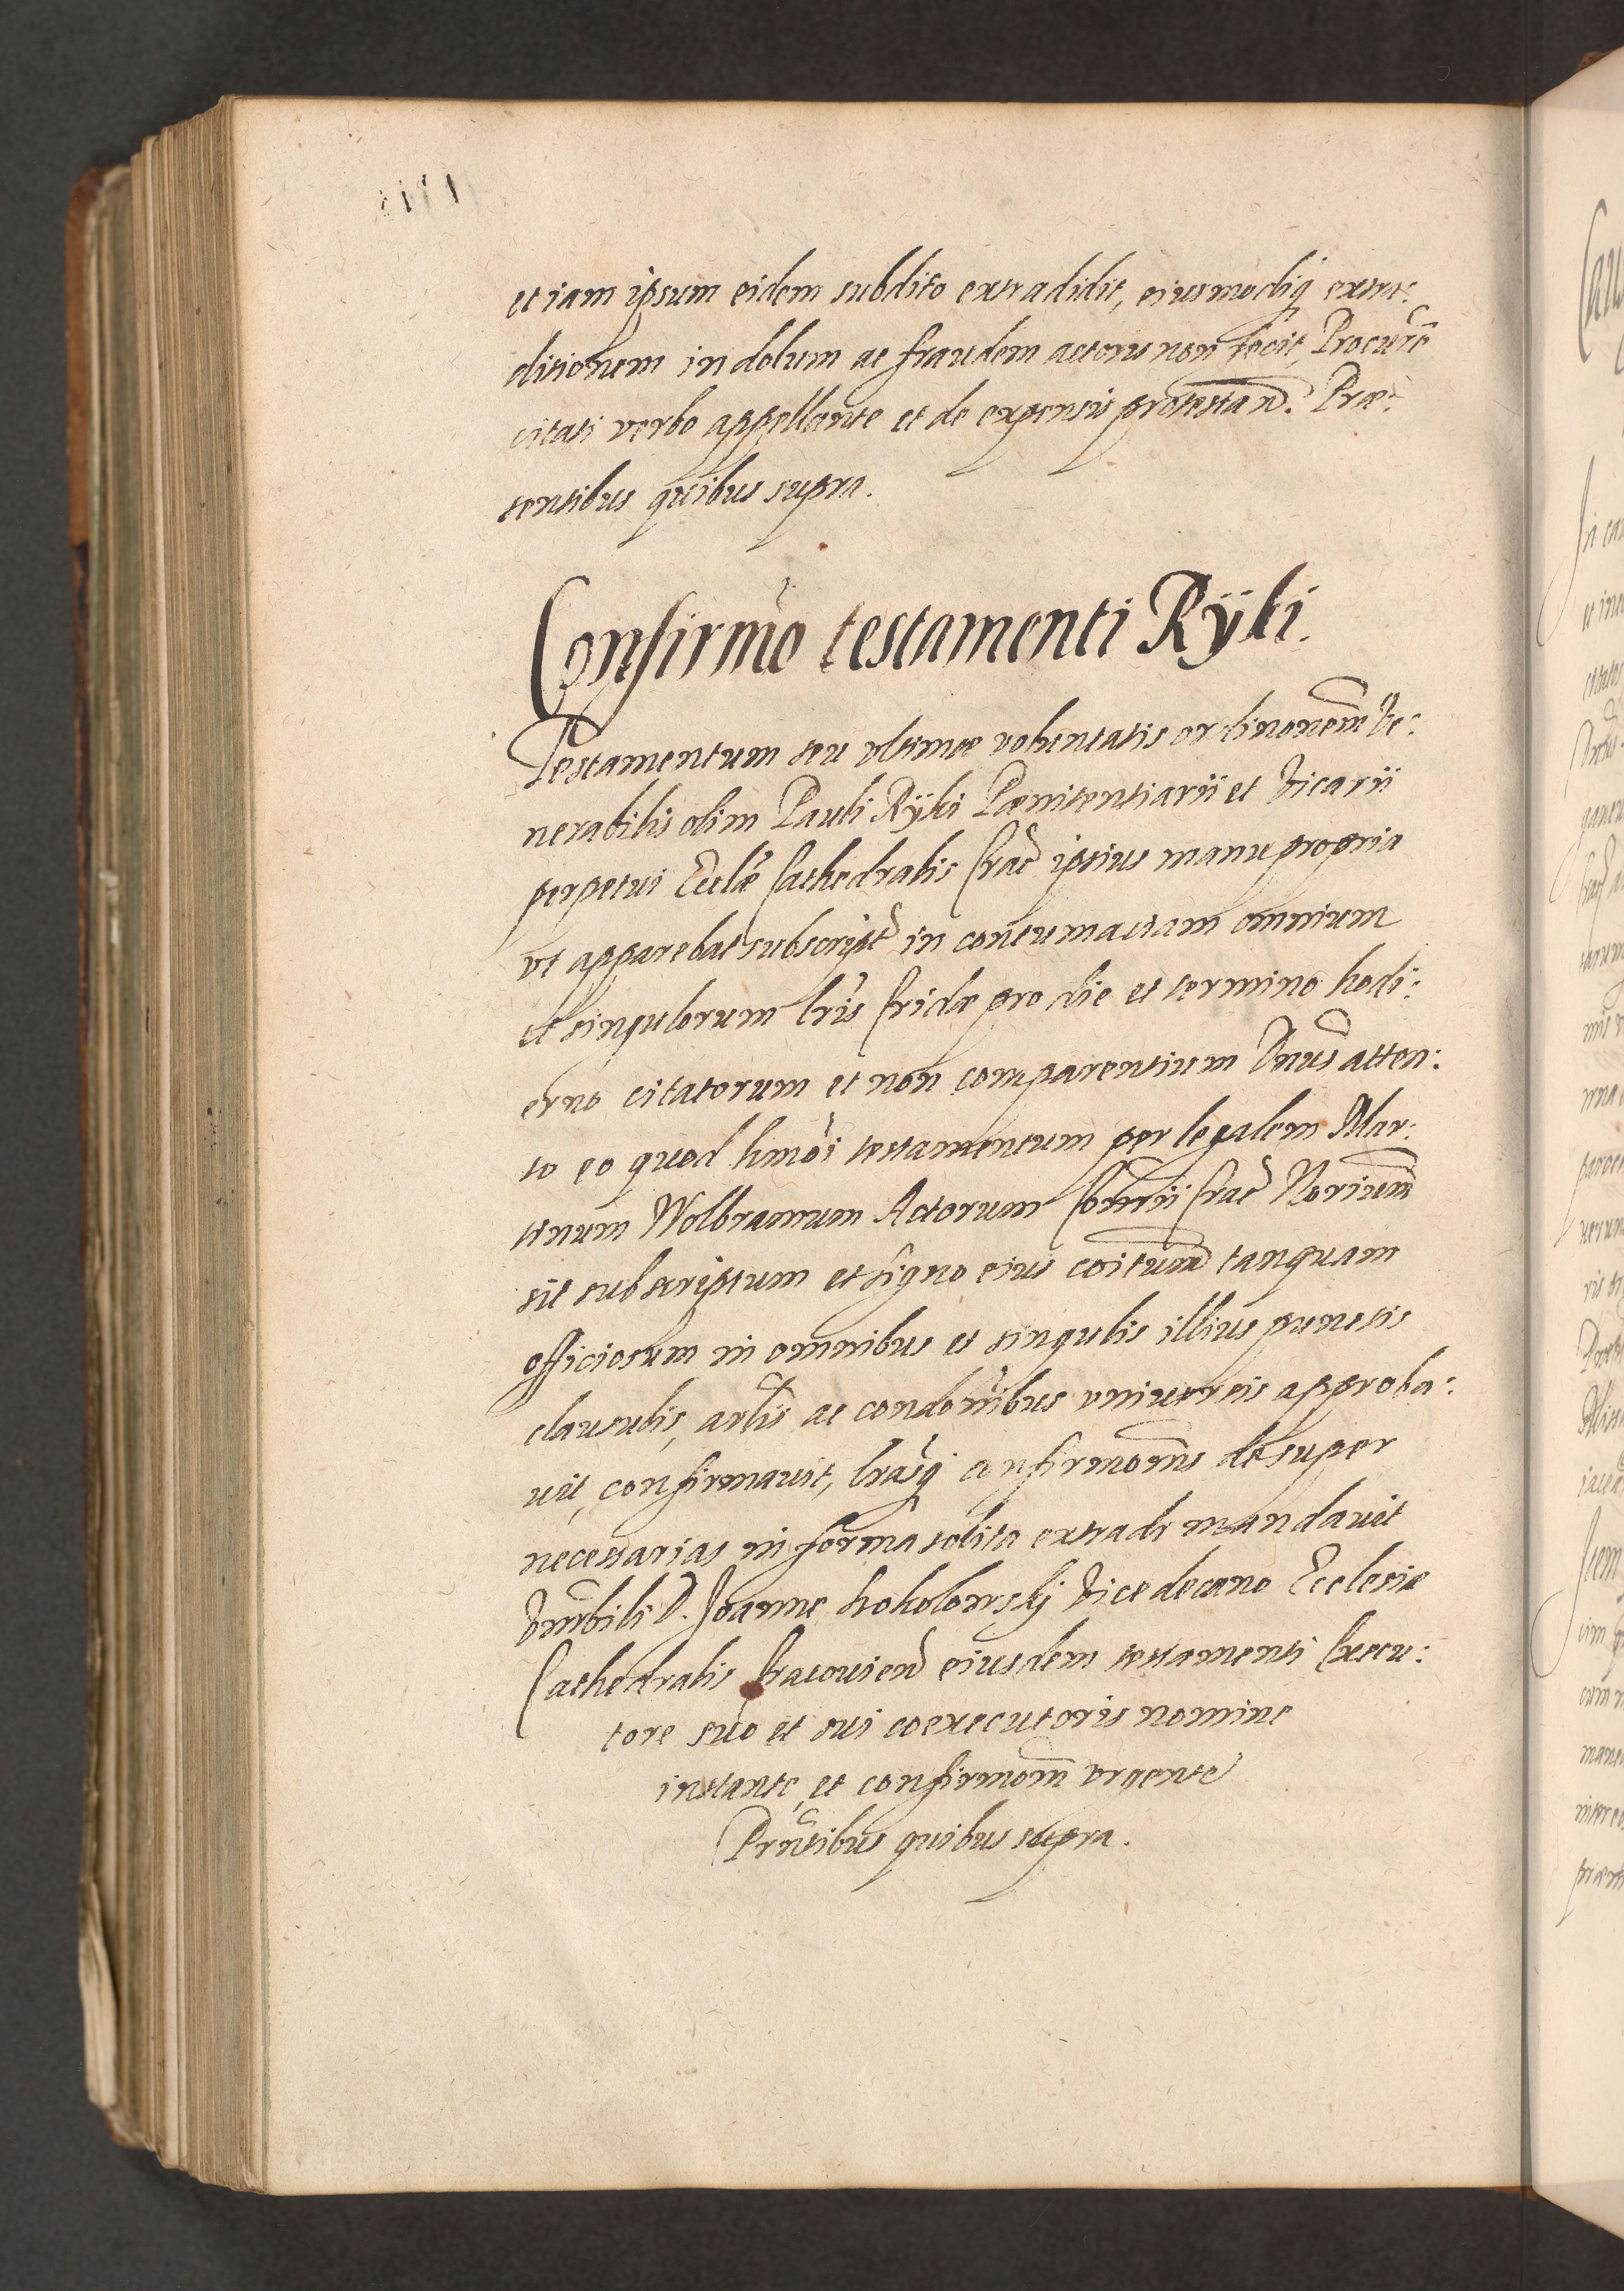 et iam ipsum eidem subdito extradidit, eiusmodiq̃ extra:
ditionem in dolum ac fraudem actoris non fecit, Procurẽ
citati verbo appellante et de expensis protestan̄. Præ:
sentibus quibus supra.
Confirmõ testamenti Rÿki.
Testamentum seu vltimæ voluntatis ordinonem̃ Ve:
nerabilis olim Pauli Rÿki Pœnitentiarii et Vicarii
perpetui Ecclæ̃ Cathedralis Crac̃ ipsius manu propria
vt apparebat subscript̃ in contumaciam omnium
et singulorum lrĩs Cridæ pro die et termino hodi:
erno citatorum et non comparentium Dnus̃ atten:
to eo quod hmõi testamentum per legalem Mar:
tinum Wolbramum Actorum Consrĩi Crac̃ Norium̃
sit subscriptum et signo eius cõitum̃ tanquam
officiosum in omnibus et singulis illius punctis
clausulis, artlĩs ac condonĩbus vniuersis approba:
uit, confirmauit, lrãsq̃ confirmonĩs desuper
necessarias in forma solita extradi mandauit
Vnrãbili D. Joanne Sokolowskj Vicedecano Ecclesiæ
Cathedralis Cracouien̄ eiusdem testamenti Execu:
tore suo et sui coexecutoris nomine
instante, et confirmonem̃ vrgente
Prñtibus quibus supra.